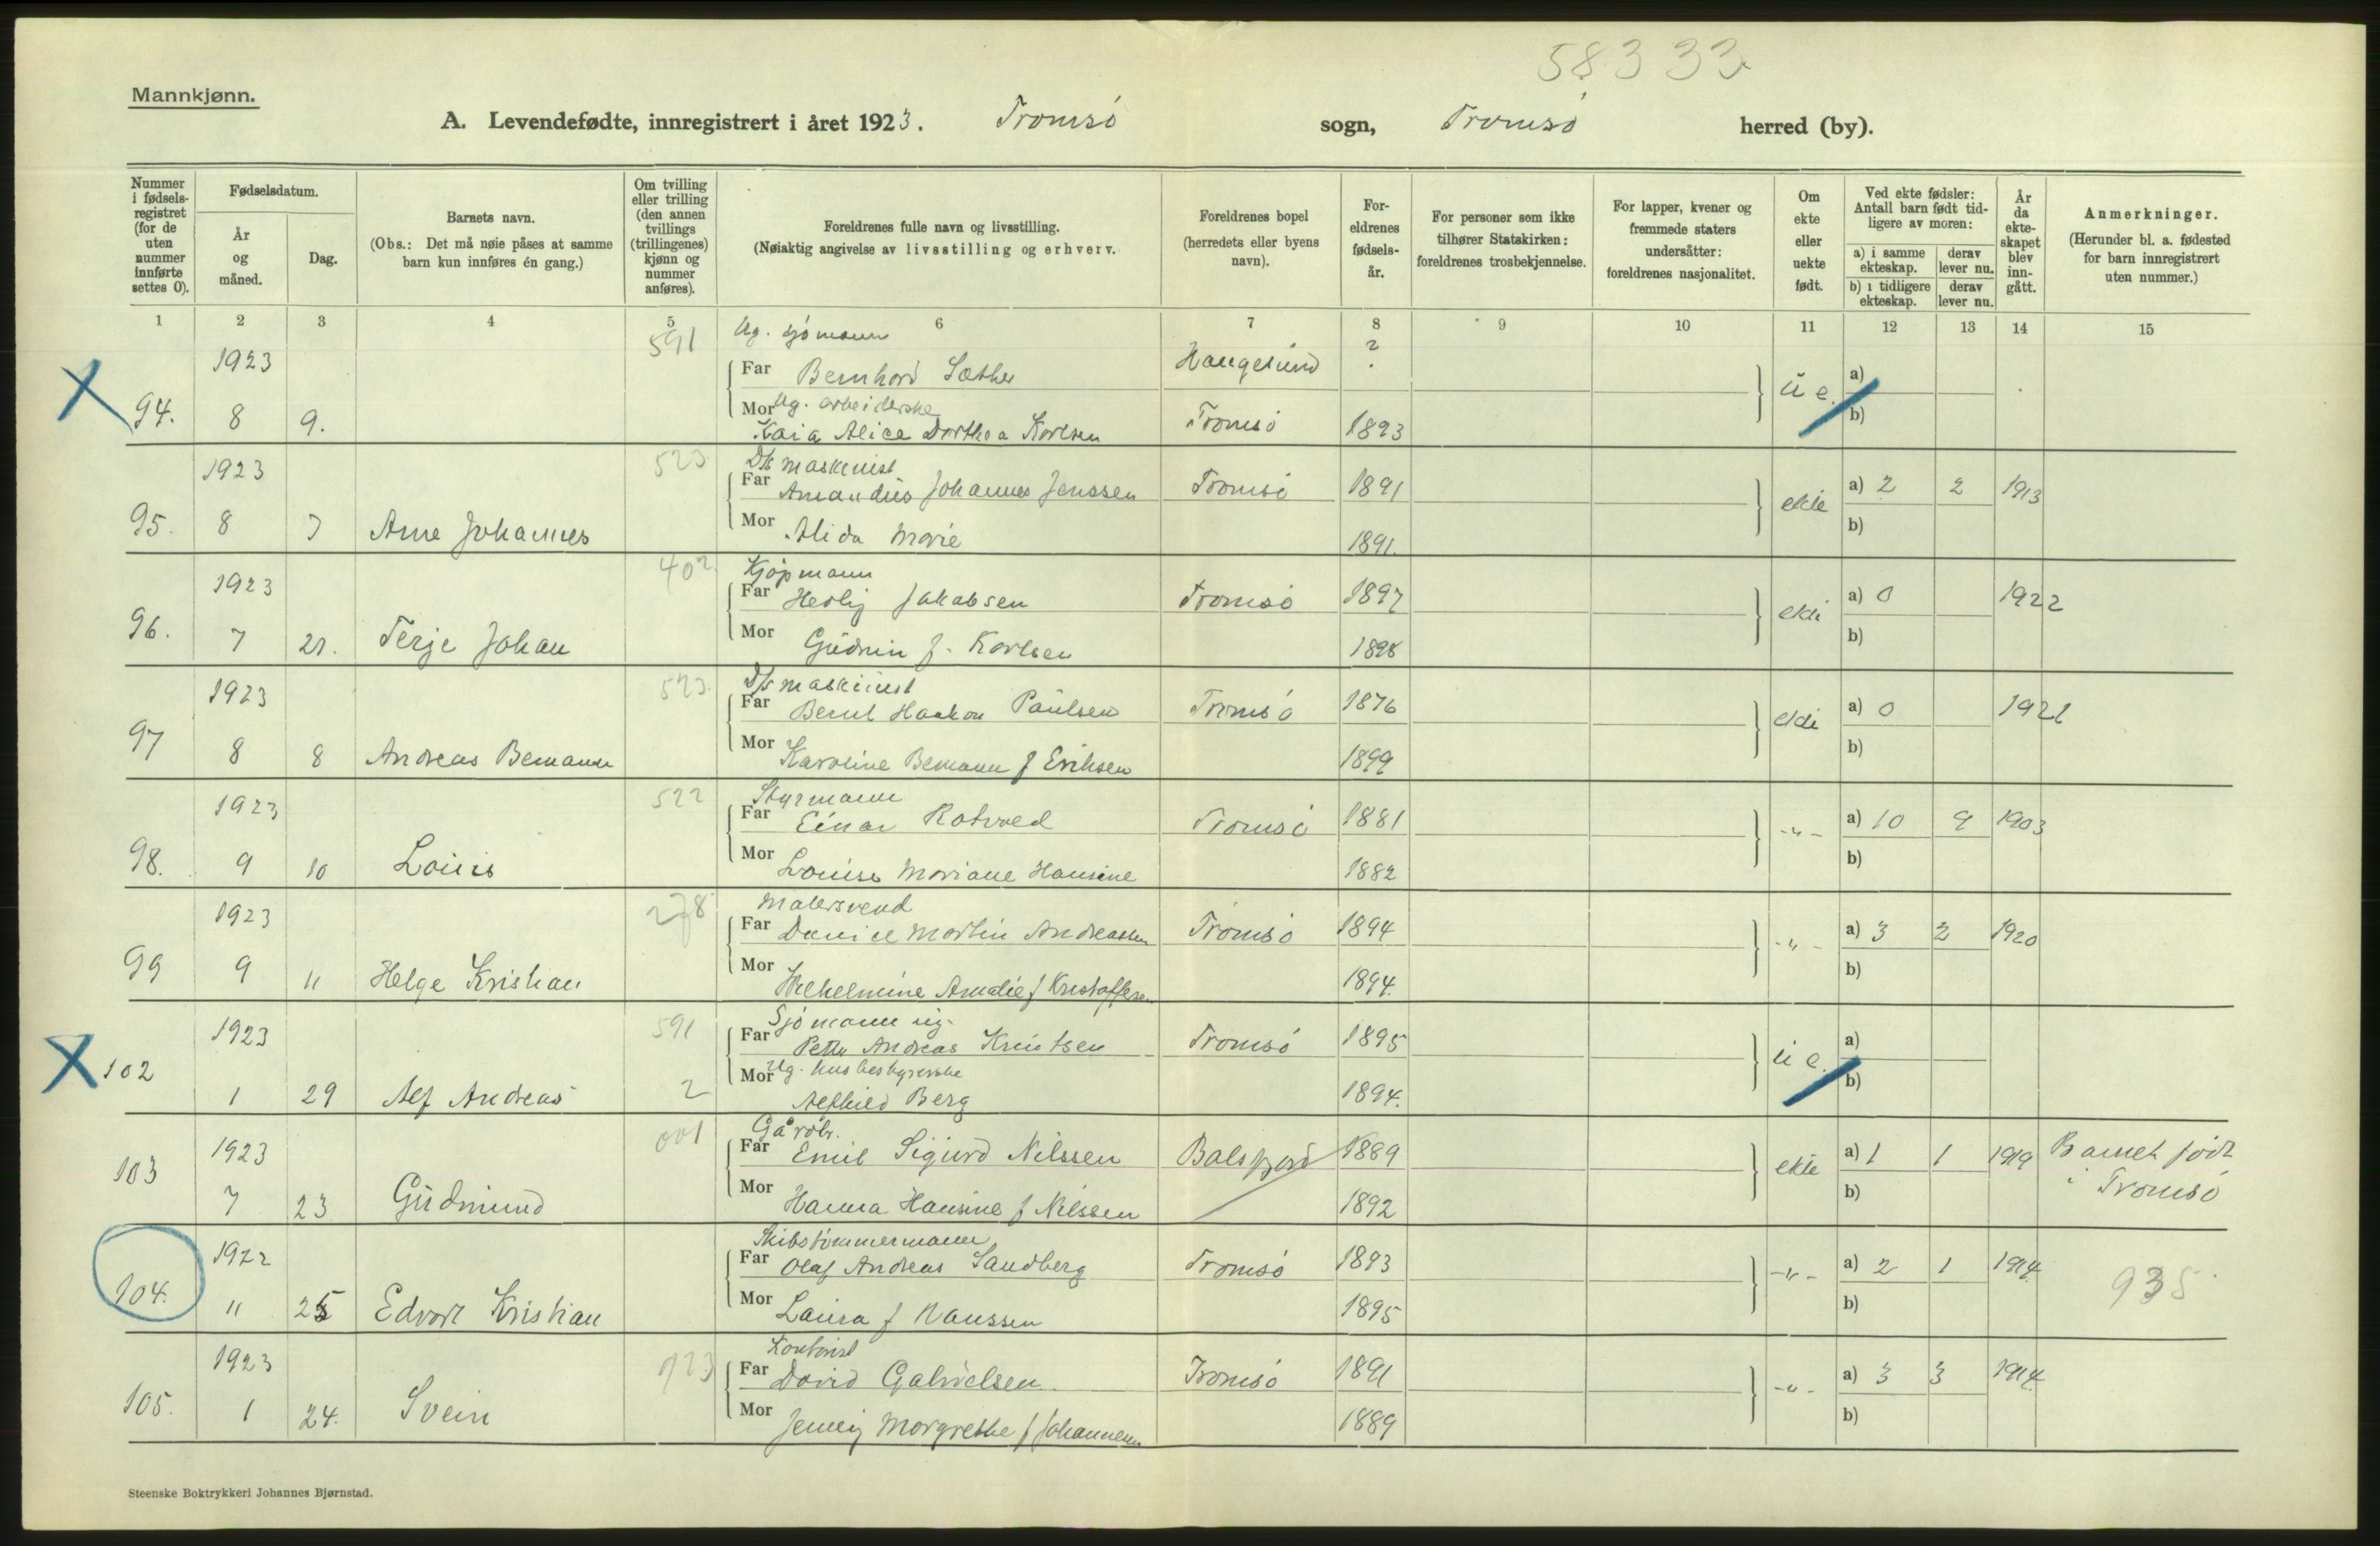 58333
Mannkjønn.
A. Levendefødte, innregistrert i året 1923. Tromsö sogn, Tromsö herred (by).
Nummer i fødselsregistret (for de uten nummer innførte settes 0).
Fødselsdatum.
År og måned.
Dag.
Barnets navn.
(Obs.: Det må nøie påses at samme barn kun innføres én gang.)
Om tvilling eller trilling (den annen tvillings (trillingenes) kjønn og nummer anføres).
Foreldrenes fulle navn og livsstilling.
(Nøiaktig angivelse av livsstilling og erhverv.
Foreldrenes bopel (herredets eller byens navn).
Foreldrenes fødselsår.
For personer som ikke tilhører Statskirken: foreldrenes trosbekjennelse.
For lapper, kvener og fremmede staters undersåtter: foreldrenes nasjonalitet.
Om ekte eller uekte født.
Ved ekte fødsler: Antall barn født tidligere av moren:
a) i samme ekteskap. derav lever nu.
b) i tidligere ekteskap. derav lever nu.
År da ekteskapet blev inngått.
Anmerkninger.
(Herunder bl. a. fødested for barn innregistrert uten nummer.)
1 2 3 4 5 6 7 8 9 10 11 12 13 14 15
591 Ug. sjömann
1923 Far Bernhard Sæther Haugesund ?
X 94. 8 9. Mor Ug. arbeiderske ü e. a)
Kaia Alice Dorthea Karlsen Tromsö 1893 b)
523 D/s maskinist
1923 Far Amandus Johannes Jenssen Tromsö 1891 ekte a) 2 2 1913
95. 8 7 Arne Johannes Mor Alida Marie 1891. b)
402 Kjøpmann
1923 Far Herlig Jakobsen Tromsö 1897 ekte a) 0 1922
96. 7 21. Terje Johan Mor Gudrun f. Karlsen 1898 b)
523 D/s maskinist
1923 Far Bernt Haakon Paulsen Tromsö 1876 ekte a) 0 1921
97 8 8 Andreas Bemann Mor Karoline Bemann f Eriksen 1899 b)
522 Styrmann
1923 Far Einar Rotvold Tromsö 1881 -"- a) 10 9 1903
98. 9 10 Louis Mor Louise Mariane Hansine 1882 b)
278 Malersvend
1923 Far Daniel Martin Andreassen Tromsö 1894 -"- a) 3 2 1920
99 9 11 Helge Kristian Mor Wilhelmine Amalie f Kristoffersen 1894. b)
591 Sjömann ug.
1923 Far Petter Andreas Knutsen Tromsö 1895 ü e. a)
X 102 1 29 Alf Andreas 2 Mor Ug. husbestyrerske
Alfhild Berg 1894. b)
001 Gårdbr.
1923 Far Emil Sigurd Nilssen Balsfjord 1889 ekte a) 1 1 1919 Barnet födt
103 7 23 Gudmund Mor Hanna Hansine f Nilssen 1892 b) i Tromsö
Skibstömmermann
1922 Far Olaf Andreas Sandberg Tromsö 1893 -"- a) 2 1 1914. 935
104. 11 25 Edvart Kristian Mor Laura f Hanssen 1895 b)
723 Kontorist
1923 Far David Gabrielsen Tromsö 1891 -"- a) 3 3 1914.
105. 1 24. Svein Mor Jenny Margrethe f Johannesen 1889 b)
Steenske Boktrykkeri Johannes Bjørnstad.